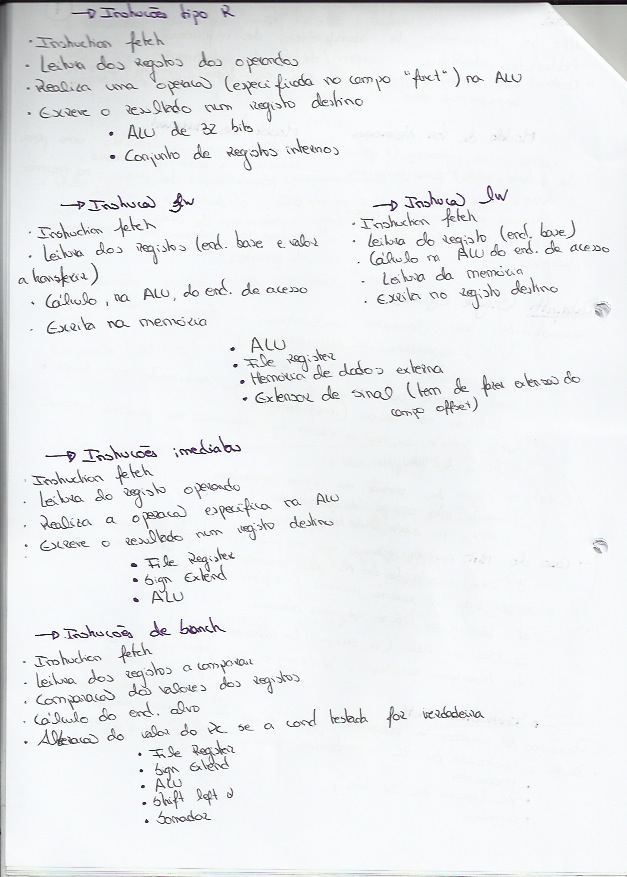 → Instruções tipo R
· Instruction fetch
· Leitura dos Registos dos operandos
· Realiza uma operação (especificada no campo "funct") na ALU
· Escreve o resultado num registo destino
• ALU de 32 bits
• Conjunto de Registos internos
→ Instrução sw
· Instruction fetch
· Leitura dos Registos (end. base e valor
a transferir)
· Cálculo, na ALU, do end. de acesso
· Escrita na memória
→ Instrução lw
· Instruction fetch
· Leitura do registo (end. base)
· Cálculo na ALU do end. de acesso
· Leitura da memória
· Escrita no registo destino
• ALU
• File Register
• Memória de dados externa
• Extensor de sinal (tem de fazer extensão do
campo offset)
→ Instruções imediatas
· Instruction fetch
· Leitura do registo operando
· Realiza a operação especifica na ALU
· Escreve o resultado num registo destino
• File Register
• Sign Extend
• ALU
→ Instruções de branch
· Instruction fetch
· Leitura dos registos a comparar
· Comparação dos valores dos registos
· Cálculo do end. alvo
· Alteração do valor do PC se a cond testada for verdadeira
• File Register
• Sign Extend
• ALU
• Shift left 2
• Somador